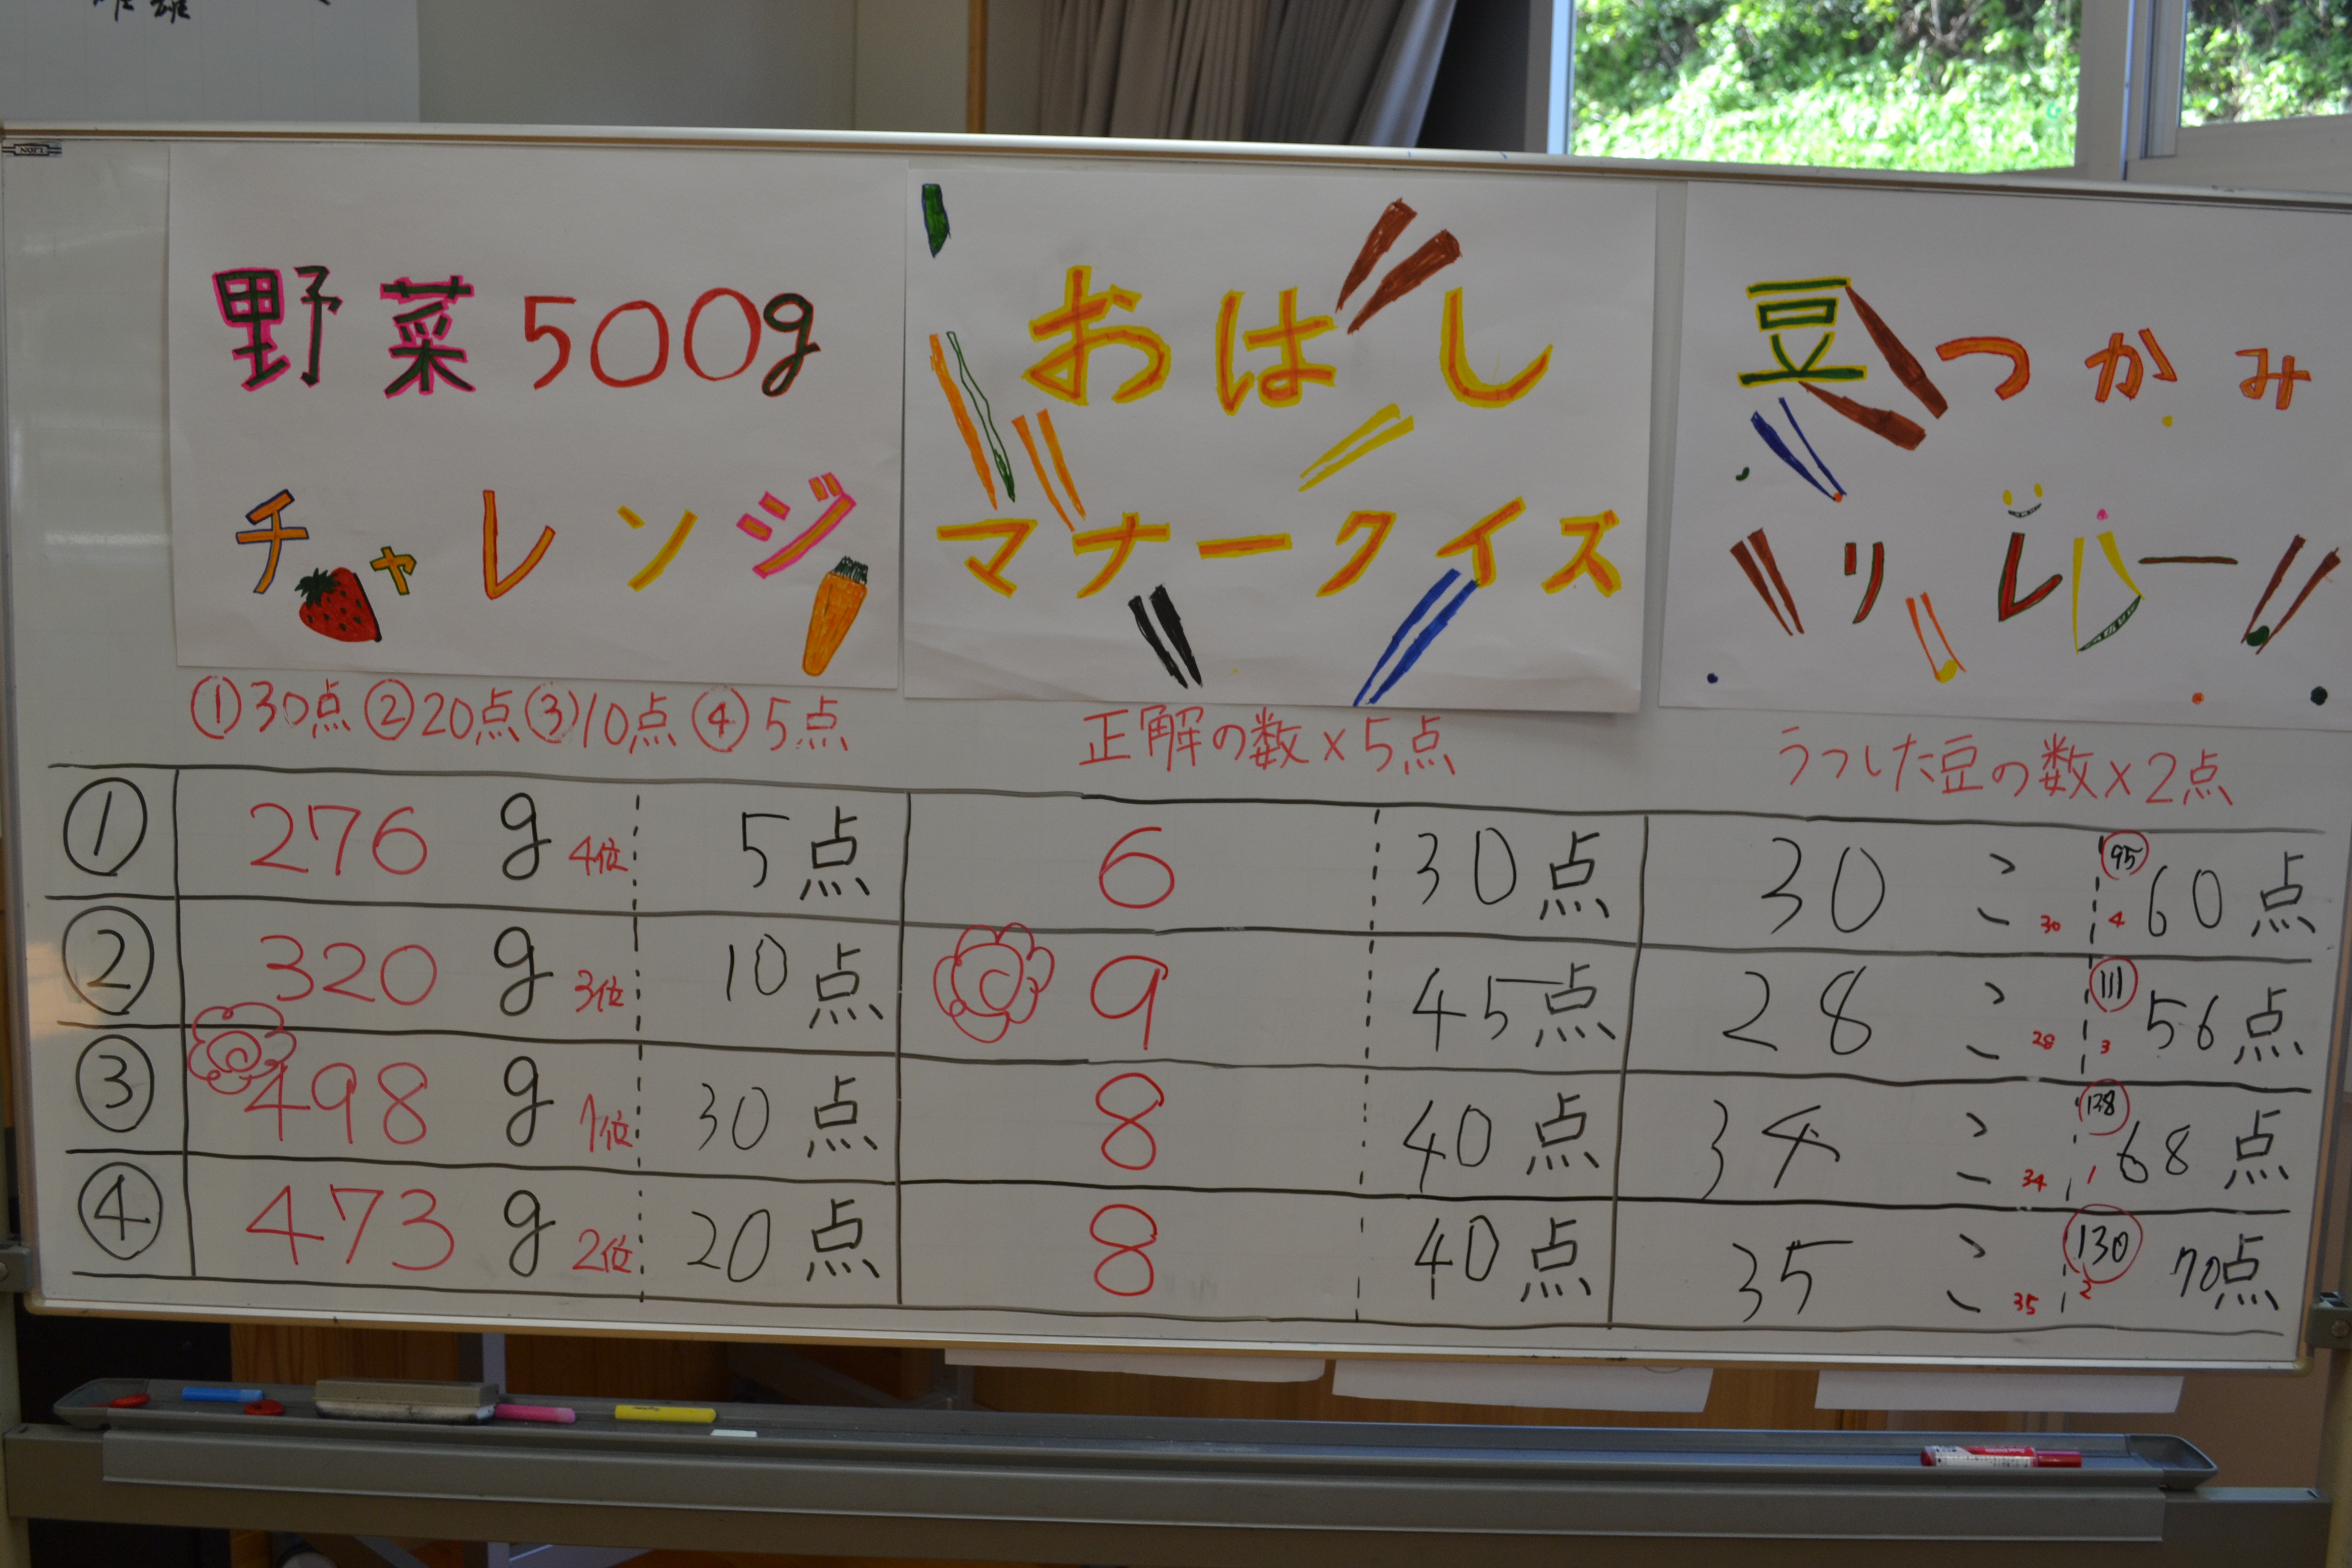 野菜500g
チャレンジ
おはし
マナークイズ
豆つかみ
リレー
①30点②20点③10点④5点
正解の数×5点
うつした豆の数×2点
① 276 g 4位 5点 6 30点 30こ 30 95 4 60点
② 320 g 3位 10点 9 45点 28こ 28 111 3 56点
③ 498 g 1位 30点 8 40点 34こ 34 138 1 68点
④ 473 g 2位 20点 8 40点 35こ 35 130 2 70点
LION